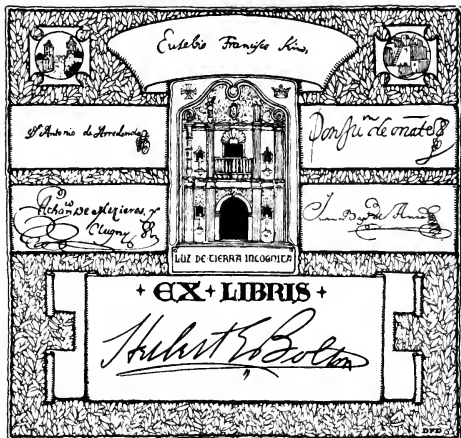 Eusebio Francisco Kino
D.n Antonio de Arredondo
Don Ju.n de oñate
Athan.e De Mezieres y
Clugny
Juan Bap.ta de Anza
LUZ DE TIERRA INCOGNITA
+ EX + LIBRIS +
Herbert E Bolton
DFD